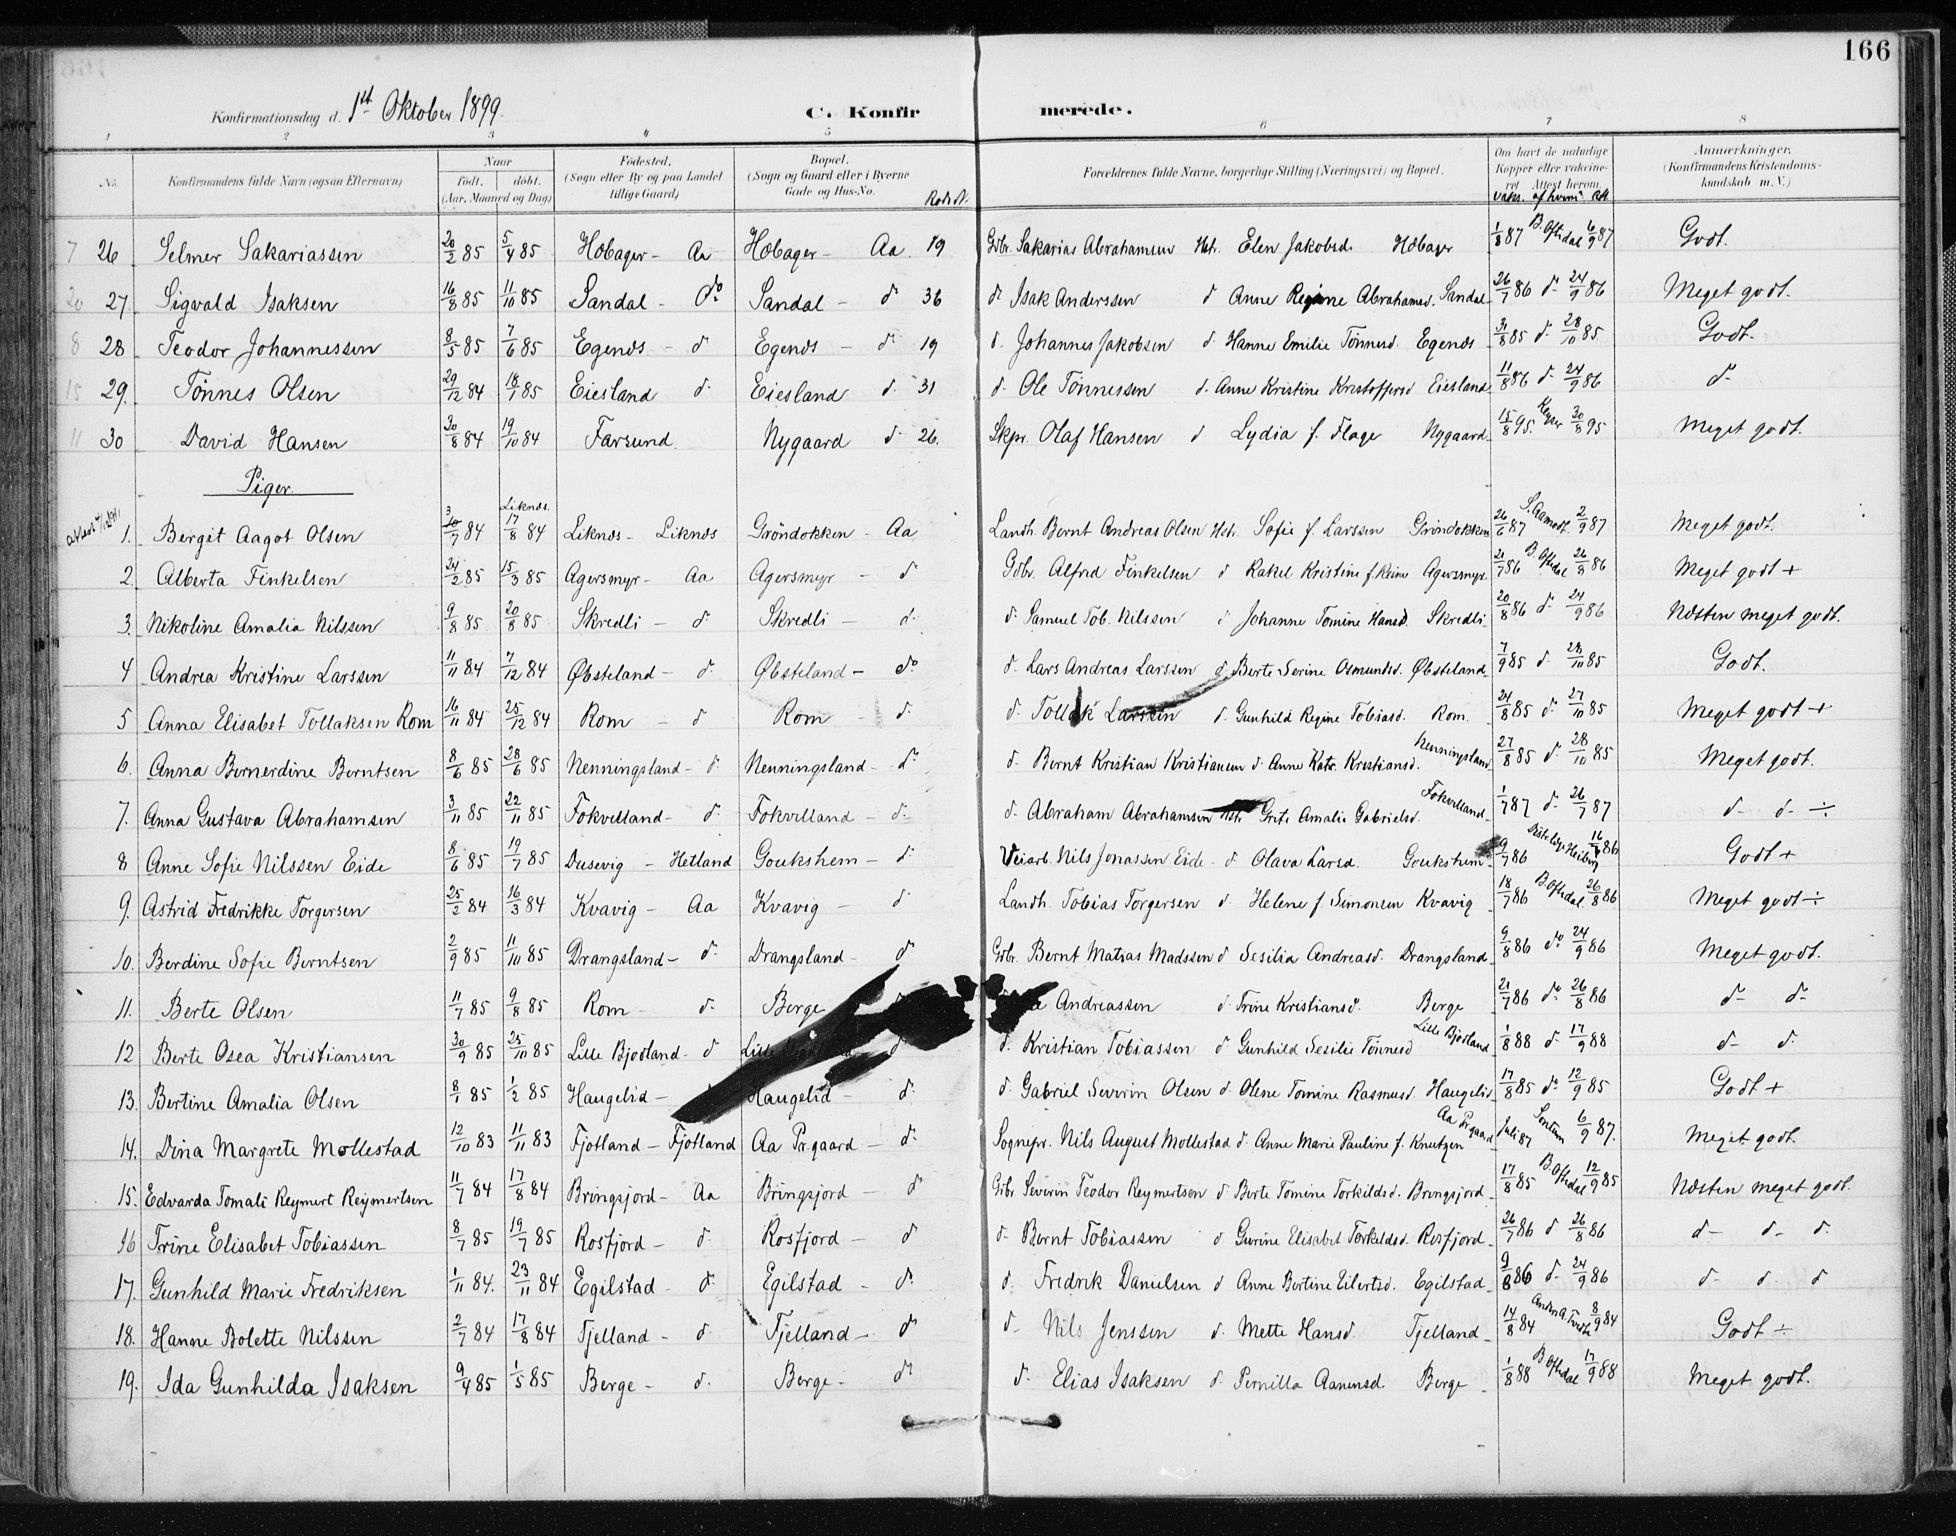 166
Konfirmationsdag d. 1st Oktober 1899. C. Konfirmerede.
1 2 3 4 5 6 7 8
No. Konfirmandens fulde Navn (ogsaa Efternavn) Naar født. døbt. (Aar, Maaned og Dag) Fødested. (Sogn eller By og paa Landet tillige Gaard) Bopæl. (Sogn og Gaard eller i Byerne Gade og Hus-No. Rode No. Forældrenes fulde Navne, borgerlige Stilling (Næringsvei) og Bopæl. Om havt de naturlige Kopper eller vakcineret. Attest herom. Vakc. af hvem Att. Anmærkninger. (Konfirmandens Kristendomskundskab m. V.)
7 26 Selmer Sakariassen 20/2 85 5/4 85 Høbager - Aa Høbager - Aa 19 Gbr. Sakarias Abrahamsen Hst. Elen Jakobsd. Høbager 1/8 87 B. Oftedal 6/9 87 Godt.
20 27. Sigvald Isaksen 16/8 85 11/10 85 Sandal - do Sandal - d 36 d Isak Anderssen d Anne Regine Abrahamsd. Sandal 26/7 86 d 24/9 86 Meget godt.
8 28 Teodor Johannessen 8/5 85 7/6 85 Egenæs - d Egenæs - d 19 d. Johannes Jakobsen d Hanne Emilie Tønnesd. Egenæs 31/8 85 d. 28/10 85 Godt.
15 29. Tønnes Olsen 29/12 84 18/1 85 Eiesland d. Eiesland d. 31 d. Ole Tønnessen d. Anne Kristine Kristoffersd Eiesland 11/8 86 d 24/9 86 d
11 30 David Hansen 30/8 84 19/10 84 Farsund Nygaard d 26. Skpr. Olaf Hansen d Lydia f. Flage Nygaard 15/8 95. Keyser 30/8 95 Meget godt.
Piger
1. Bergit Aagot Olsen /7 84 Liknæs. 17/8 84 Liknæs - Liknæs Grøndokken - Aa Landh. Bernt Andreas Olsen Hst. Sofie f. Larssen Grøndokken 26/6 87 S. Aamodt 2/9 87 Meget godt.
2. Alberta Finkelsen 24/2 85 15/3 85 Agersmyr - Aa Agersmyr - d Gbr. Alfred Finkelsen d Rakel Kristine f. Reim Agersmyr 21/7 86 B. Oftedal 26/8 86 Meget godt +
3. Nikoline Amalia Nilssen 9/8 85 20/8 85 Skredli - d Skredli - d. d. Samuel Tob. Nilssen d Johanne Tomine Hansd. Skredli 20/8 86 d 24/9 86 Næsten meget godt.
4 Andrea Kristine Larssen 11/11 84 7/12 84 Øbsteland - d. Øbsteland - do d. Lars Andreas Larssen d. Berte Serine Osmundsd. Øbsteland 7/9 85 d. 28/10 85 Godt.
5 Anna Elisabet Tollaksen Rom 16/11 84 25/12 84 Rom - d Rom - d. d. Tollak Larssen d. Gunhild Regine Tobiasd. Rom 24/8 85 d 27/10 85 Meget godt +
6. Anna Bernerdine Berntsen 8/6 85 28/6 85 Nenningsland - d Nenningsland - d. d. Bernt Kristian Kristiansen d. Anne Katr. Kristiansd. Nenningsland 27/8 85 d 28/10 85 Meget godt.
7. Anna Gustava Abrahamsen 3/11 85 22/11 85 Fokvelland - d. Fokvelland - d. d. Abraham Abrahamsen Hst. Grete Amalie Gabrielsd. Fokvelland 1/7 87 d. 26/7 87 d d ÷
8 Anne Sofie Nilssen Eide 8/6 85 19/7 85 Dusevig - Hetland Goukshem - d Veiarb. Nils Jonassen Eide - d Olava Larsd. Goukshem 9/7 86 16/ 86 Godt +
9. Astrid Fredrikke Torgersen 25/2 84 16/3 84 Kvavig - Aa Kvavig - d Landh. Tobias Torgersen d. Helene f. Simonsen Kvavig 18/7 86 B Oftedal 26/8 86 Meget godt ÷
10. Berdine Sofie Berntsen 2/9 85 11/10 85 Drangsland - d. Drangsland - d Gbr. Bernt Matias Madssen d Sesilia Andreasd. Drangsland 9/8 86 do 24/9 86 Meget godt.
11. Berte Olsen 11/7 85 9/8 85 Rom - d. Berge Andreassen d. Trine Kristiansd. Berge 21/7 86 d. 26/8 86 d d
12 Berte Osea Kristiansen 30/9 85 25/10 85 Lille Bjodland - d Lille d d. Kristian Tobiassen d Gunhild Sesilie Tønnesd Lille Bjodland 1/8 88 d 17/9 88 d d.
13. Bertine Amalia Olsen 8/1 85 1/2 85 Haugelid - Haugelid - d. d. Gabriel Severin Olsen d. Olene Tomine Rasmusd. Haugelid 17/8 85 d. 12/9 85 Godt +
14. Dina Margrete Mollestad 12/10 83 11/11 83 Fjotland - Fjotland Aa Pr.gaard - d. Sognepr. Nils August Mollestad d. Anne Marie Pauline f. Knutzen Aa Pr.gaard Juli 87 Sentum 6/9 87. Meget godt.
15. Edvarda Tomali Reymert Reymertsen 11/7 84 17/8 84 Bringsjord - Aa Bringsjord - d Gbr Severin Teodor Reymertsen d Berte Tomine Torkildsd. Bringsjord 17/8 85 B. Oftedal 12/9 85 Næsten meget godt.
16 Trine Elisabet Tobiassen 8/7 85 19/7 85 Rosfjord - d. Rosfjord - d d Bernt Tobiassen d Gurine Elisabet Torkeldsd. Rosfjord 26/7 86 d 26/8 86 d - d - d.
17. Gunhild Marie Fredriksen 1/11 84. 23/11 84 Egilstad - d. Egilstad - d. d. Fredrik Danielsen d Anne Bertine Eilertsd. Egilstad 9/8 86 d. 24/9 86 d d d
18. Hanne Bolette Nilssen 2/7 84 17/8 84 Tjelland - d Tjelland - d d Nils Jenssen d. Mette Hansd. Tjelland 14/8 84 8/9 84 Godt ÷
19. Ida Gunhilda Isaksen 9/4 85 1/5 85 Berge - d. Berge - d d. Elias Isaksen d. Pernilla Aanensd Berge 1/8 88 B Oftedal 17/9 88 Meget godt.